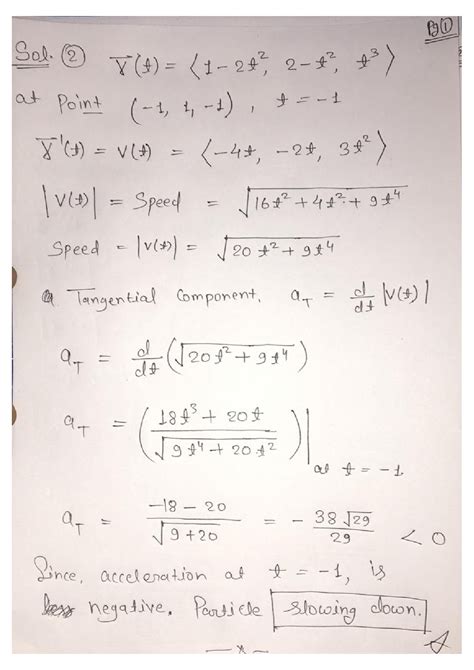 P①
Sol. ② r̄(t) = ⟨1-2t², 2-t², t³⟩
at Point (-1, 1, -1), t = -1
r̄'(t) = v(t) = ⟨-4t, -2t, 3t²⟩
|v(t)| = Speed = √(16t² + 4t² + 9t⁴)
Speed = |v(t)| = √(20t² + 9t⁴)
Tangential Component, a_T = d/dt |v(t)|
a_T = d/dt (√(20t² + 9t⁴))
a_T = ((18t³ + 20t)/√(9t⁴ + 20t²))| at t = -1
a_T = (-18 - 20)/√(9+20) = - 38√29/29 < 0
Since, acceleration at t = -1, is
negative. Particle slowing down.